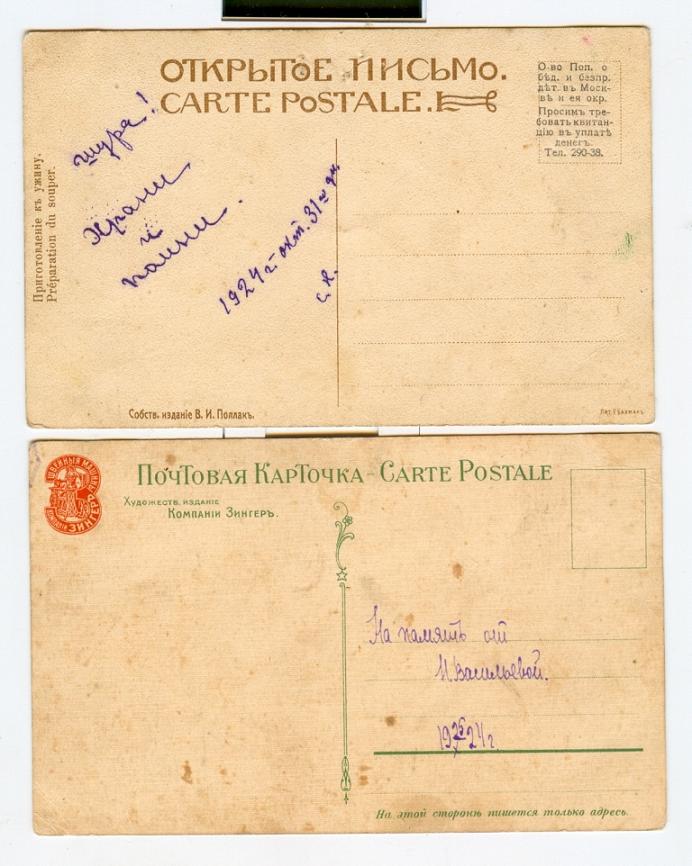 ОТКРЫТОЕ ПИСЬМО.
CARTE POSTALE.
О-во Поп. о
бѣд. и безпр.
дѣт. въ Моск-
вѣ и ея окр.
Просимъ тре-
бовать квитан-
цію въ уплатѣ
денегъ.
Тел. 290-38.
Приготовленіе къ ужину.
Préparation du souper.
Шура!
Храни
и
помни.
1924 г. окт. 31го дня
С. К.
Собств. изданіе В. И. Поллакъ.
ШВЕЙНЫЯ МАШИНЫ
КОМПАНІИ ЗИНГЕРЪ
ПОЧТОВАЯ КАРТОЧКА - CARTE POSTALE
ХУДОЖЕСТВ. ИЗДАНІЕ
КОМПАНІИ ЗИНГЕРЪ.
На память от
Н Васильевой.
19 25/X 24 г.
На этой сторонѣ пишется только адресъ.